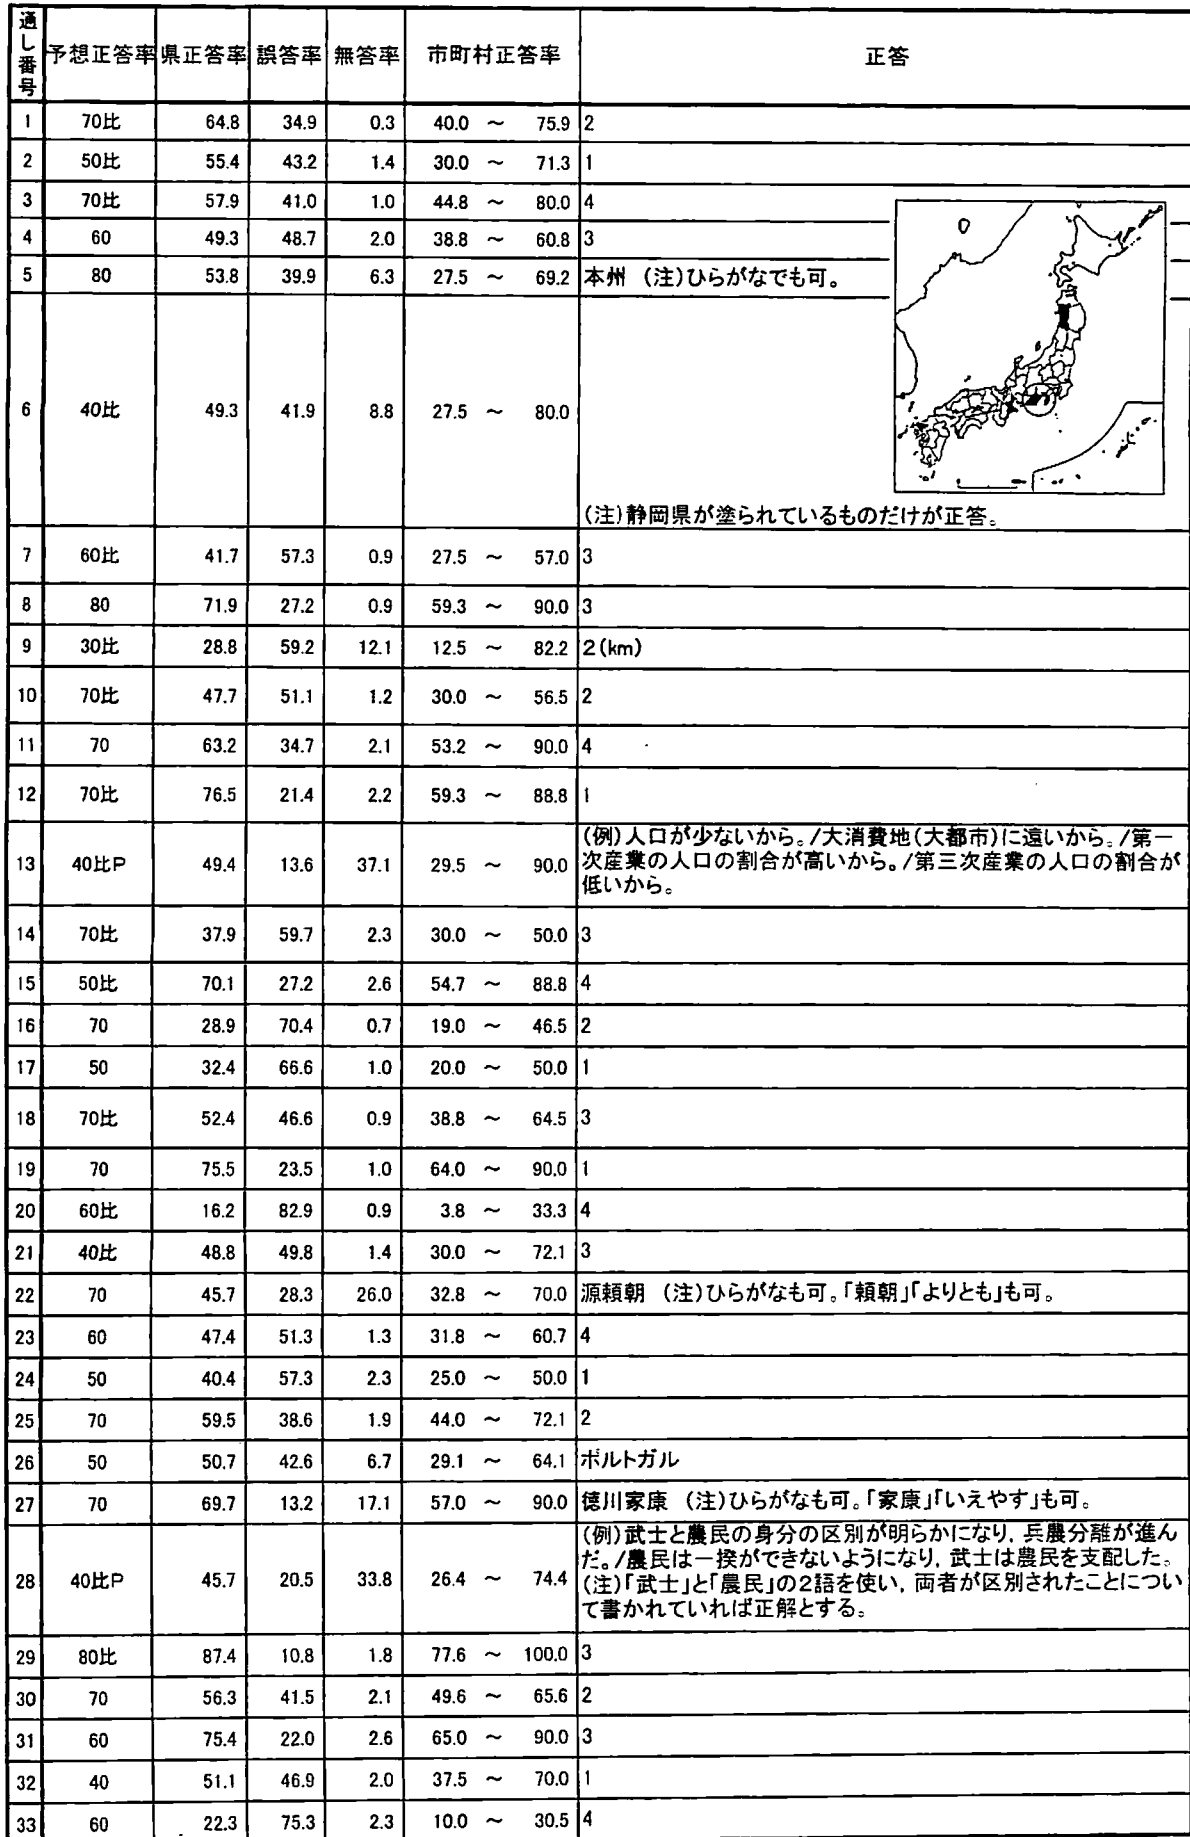 通し番号 予想正答率 県正答率 誤答率 無答率 市町村正答率 正答
1 70比 64.8 34.9 0.3 40.0 ～ 75.9 2
2 50比 55.4 43.2 1.4 30.0 ～ 71.3 1
3 70比 57.9 41.0 1.0 44.8 ～ 80.0 4
4 60 49.3 48.7 2.0 38.8 ～ 60.8 3
5 80 53.8 39.9 6.3 27.5 ～ 69.2 本州 (注)ひらがなでも可。
6 40比 49.3 41.9 8.8 27.5 ～ 80.0
(注)静岡県が塗られているものだけが正答。
7 60比 41.7 57.3 0.9 27.5 ～ 57.0 3
8 80 71.9 27.2 0.9 59.3 ～ 90.0 3
9 30比 28.8 59.2 12.1 12.5 ～ 82.2 2(km)
10 70比 47.7 51.1 1.2 30.0 ～ 56.5 2
11 70 63.2 34.7 2.1 53.2 ～ 90.0 4
12 70比 76.5 21.4 2.2 59.3 ～ 88.8 1
13 40比P 49.4 13.6 37.1 29.5 ～ 90.0
(例)人口が少ないから。/大消費地(大都市)に遠いから。/第一
次産業の人口の割合が高いから。/第三次産業の人口の割合が
低いから。
14 70比 37.9 59.7 2.3 30.0 ～ 50.0 3
15 50比 70.1 27.2 2.6 54.7 ～ 88.8 4
16 70 28.9 70.4 0.7 19.0 ～ 46.5 2
17 50 32.4 66.6 1.0 20.0 ～ 50.0 1
18 70比 52.4 46.6 0.9 38.8 ～ 64.5 3
19 70 75.5 23.5 1.0 64.0 ～ 90.0 1
20 60比 16.2 82.9 0.9 3.8 ～ 33.3 4
21 40比 48.8 49.8 1.4 30.0 ～ 72.1 3
22 70 45.7 28.3 26.0 32.8 ～ 70.0 源頼朝 (注)ひらがなも可。「頼朝」「よりとも」も可。
23 60 47.4 51.3 1.3 31.8 ～ 60.7 4
24 50 40.4 57.3 2.3 25.0 ～ 50.0 1
25 70 59.5 38.6 1.9 44.0 ～ 72.1 2
26 50 50.7 42.6 6.7 29.1 ～ 64.1 ポルトガル
27 70 69.7 13.2 17.1 57.0 ～ 90.0 徳川家康 (注)ひらがなも可。「家康」「いえやす」も可。
28 40比P 45.7 20.5 33.8 26.4 ～ 74.4
(例)武士と農民の身分の区別が明らかになり，兵農分離が進ん
だ。/農民は一揆ができないようになり，武士は農民を支配した。
(注)「武士」と「農民」の2語を使い，両者が区別されたことについ
て書かれていれば正解とする。
29 80比 87.4 10.8 1.8 77.6 ～ 100.0 3
30 70 56.3 41.5 2.1 49.6 ～ 65.6 2
31 60 75.4 22.0 2.6 65.0 ～ 90.0 3
32 40 51.1 46.9 2.0 37.5 ～ 70.0 1
33 60 22.3 75.3 2.3 10.0 ～ 30.5 4